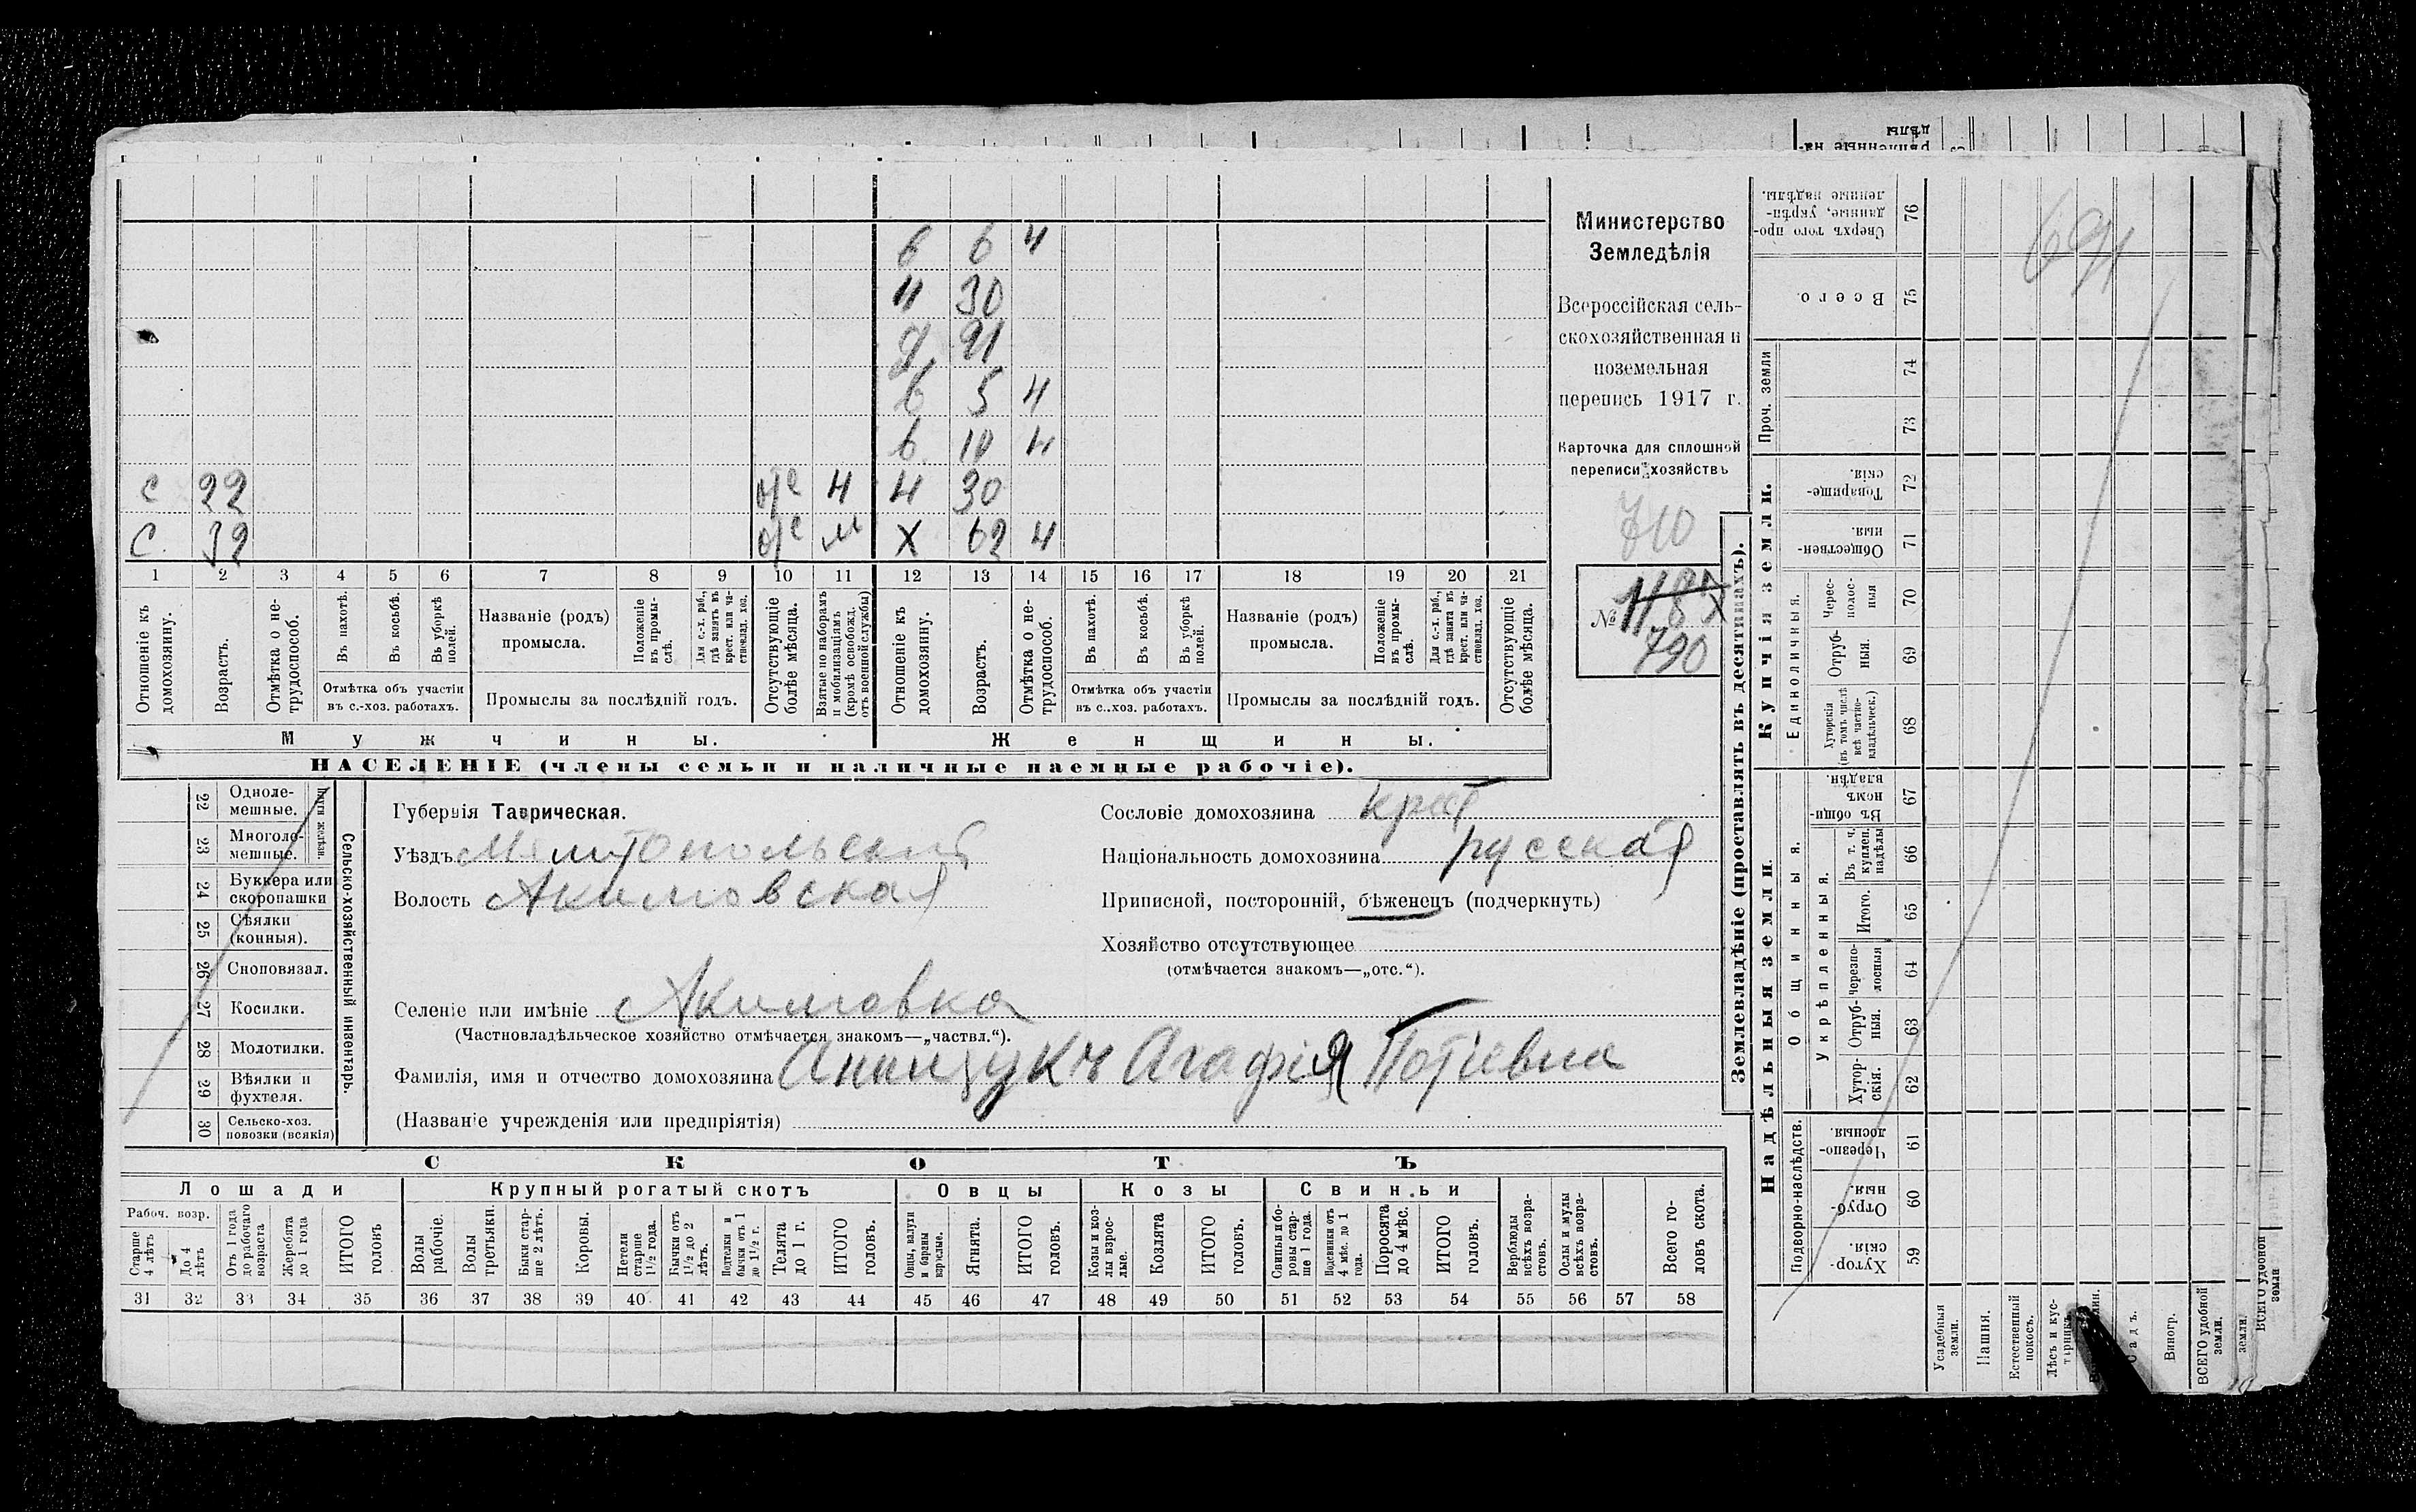 6 6 4
4 30
д 21
6 5 4
6 10 4
с 22 4 4 30
С. 32 м Х 62 4
1 2 3 4 5 6 7 8 9 10 11 12 13 14 15 16 17 18 19 20 21
Отношеніе къ домохозяину.
Возрастъ.
Отмѣтка о не-
трудоспособ.
Въ пахотѣ.
Въ косьбѣ.
Въ уборкѣ
полей.
Отмѣтка объ участіи
въ с.-хоз. работахъ.
Названіе (родъ)
промысла.
Положеніе
въ промы-
слѣ.
Для с.-х. раб.,
гдѣ занятъ въ
крест. или ча-
стновлад. хоз.
Промыслы за послѣдній годъ.
Отсутствующіе
болѣе мѣсяца.
Взятые по наборамъ
и мобилизаціямъ
(кромѣ освобожд.
отъ военной службы)
Отношеніе къ
домохозяину.
Возрастъ.
Отмѣтка о не-
трудоспособ.
Въ пахотѣ.
Въ косьбѣ.
Въ уборкѣ
полей.
Отмѣтка объ участіи
въ с..хоз. работахъ.
Названіе (родъ)
промысла.
Положеніе
въ промы-
слѣ.
Для с.-х. раб.,
гдѣ занята въ
крест. или ча-
стновлад. хоз.
Промыслы за послѣдній годъ.
Отсутствующіе
болѣе мѣсяца.
Мужчины.
Женщины.
НАСЕЛЕНІЕ (члены семьи и наличные наемные рабочіе).
Министерство
Земледѣлія
Всероссійская сель-
скохозяйственная и
поземельная
перепись 1917 г.
Карточка для сплошной
переписи хозяйствъ
710
№
790
22 Одноле-
мешные.
23 Многоле-
мешные.
Плуги желѣз.
24 Буккера или
скоропашки
25 Сѣялки
(конныя).
26 Сноповязал.
27 Косилки.
28 Молотилки.
29 Вѣялки и
фухтеля.
30 Сельско-хоз.
повозки (всякія)
Сельско-хозяйственный инвентарь.
Губернія Таврическая.
Уѣздъ Мелитопольскій
Волость Акимовская
Селеніе или имѣніе Акимовка
(Частновладѣльческое хозяйство отмѣчается знакомъ—„частвл.“).
Фамилія, имя и отчество домохозяина Агафія
(Названіе учрежденія или предпріятія)
Сословіе домохозяина крест
Національность домохозяина русская
Приписной, посторонній, бѣженецъ (подчеркнуть)
Хозяйство отсутствующее
(отмѣчается знакомъ—„отс.“).
СКОТЪ
Лошади
Рабоч. возр.
Старше
4 лѣтъ
До 4
лѣтъ
Отъ 1 года
до рабочаго
возраста
Жеребята
до 1 года
ИТОГО
головъ
Крупный рогатый скотъ
Волы
рабочіе.
Волы
третьяки.
Быки стар-
ше 2 лѣтъ.
Коровы.
Нетели
старше
1½ года.
Бычки отъ
1½ до 2
лѣтъ.
Подтелки и
бычки отъ 1
до 1½ г.
Телята
до 1 г.
ИТОГО
головъ.
Овцы
Овцы, валухи
и бараны
взрослые.
Ягнята.
ИТОГО
головъ.
Козы
Козы и коз-
лы взрос-
лые.
Козлята
ИТОГО
головъ.
Свиньи
Свиньи и бо-
ровы стар-
ше 1 года.
Подсвинки отъ
4 мѣс. до 1
года.
Поросята
до 4 мѣс.
ИТОГО
головъ.
Верблюды
всѣхъ возра-
стовъ.
Ослы и мулы
всѣхъ возра-
стовъ.
Всего го-
ловъ скота.
31 32 33 34 35 36 37 38 39 40 41 42 43 44 45 46 47 48 49 50 51 52 53 54 55 56 57 58
Землевладѣніе (проставлять въ десятинахъ).
Надѣльныя земли
Купчія земли.
Подворно-наслѣдств.
Хутор-
скія.
59
Отруб-
ныя.
60
Черезпо-
лосныя.
61
Общинныя.
Укрѣпленныя.
Хутор-
скія.
62
Отруб-
ныя.
63
Черезпо-
лосныя
64
Итого.
65
Въ т. ч.
куплен.
надѣлы
66
Въ общи-
номъ
владѣн.
67
Единоличныя.
Хуторскія
(въ томъ числѣ
всѣ частно-
владѣльческ.)
68
Отруб-
ныя.
69
Черес-
полос-
ныя
70
Обществен-
ныя.
71
Товарище-
скія.
72
Проч. земли
73
74
Всего.
75
Сверхъ того про-
данные, укрѣп-
ленные надѣлы.
76
691
Усадебныя
земли.
Пашня.
Естественный
покосъ.
Лѣсъ и кус-
тарникъ
Садъ.
Виногр.
ВСЕГО удобной
земли.
земли.
ВСЕГО удобной
земли